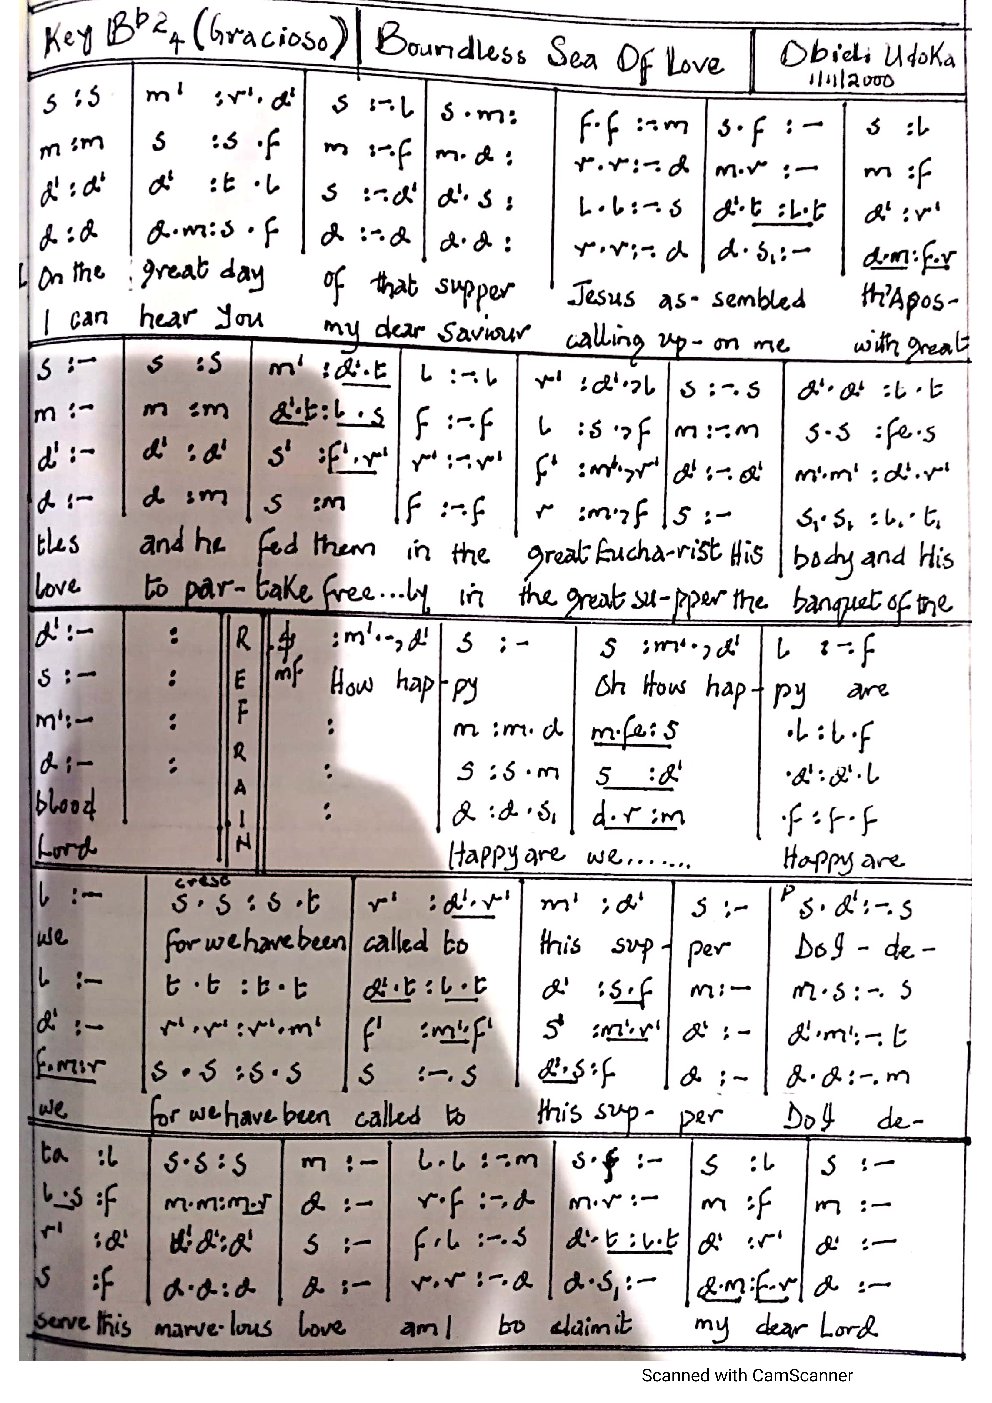 Key Bb 2/4 (Gracioso) | Boundless Sea Of Love | Obieli Udoka 1/11/2000
s :s | m' :r'.d' | s :-.l | s.m: | f.f :-.m | s.f :- | s :l
m :m | s :s .f | m :-.f | m.d : | r.r:-.d | m.r :- | m :f
d' :d' | d' :t .l | s :-.d' | d'.s : | l.l:-.s | d'.t :l.t | d' :r'
d :d | d.m:s .f | d :-.d | d.d : | r.r:-.d | d.s₁:- | d.m:f.r
On the great day of that supper Jesus as-sembled th'Apos-
I can hear You my dear Saviour calling up-on me with great
s :- | s :s | m' :d'.t | l :-.l | r' :d'.,l | s :-.s | d'.d' :l.t
m :- | m :m | d'.t:l.s | f :-.f | l :s.,f | m:-.m | s.s :fe.s
d' :- | d' :d' | s' :f'.r' | r' :-.r' | f' :m'.,r' | d' :-.d' | m'.m' :d'.r'
d :- | d :m | s :m | f :-.f | r :m.,f | s :- | s₁.s₁ :l₁.t₁
tles and he fed them in the great Eucha-rist His body and His
love to par-take free...ly in the great su-pper the banquet of the
d' :- | : | REFRAIN | :m'.-,d' | s :- | s :m'.-,d' | l :-.f
s :- | : | mf How hap-py Oh How hap-py are
m' :- | : | : | m :m.d | m.fe:s | .l :l.f
d :- | : | : | s :s.m | s :d' | .d' :d'.l
blood | : | d :d.s₁ | d.r :m | .f :f.f
Lord Happy are we....... Happy are
cresc
l :- | s.s :s.t | r' :d'.r' | m' :d' | s :- | p s.d':-.s
we for we have been called to this sup-per Do I - de-
l :- | t.t :t.t | d'.t :l.t | d' :s.f | m:- | m.s:-.s
d' :- | r'.r' :r'.m' | f' :m'.f' | s' :m'.r' | d' :- | d'.m':-.t
f.m:r | s.s :s.s | s :-.s | d'.s:f | d :- | d.d:-.m
we for we have been called to this sup-per Do I de-
ta :l | s.s :s | m :- | l.l :-.m | s.f :- | s :l | s :-
l.s :f | m.m:m.r | d :- | r.f :-.d | m.r :- | m :f | m :-
r' :d' | d'.d':d' | s :- | f.l :-.s | d'.t :l.t | d' :r' | d' :-
s :f | d.d:d | d :- | r.r :-.d | d.s₁ :- | d.m:f.r | d :-
serve this marve-lous love am I to claim it my dear Lord
Scanned with CamScanner